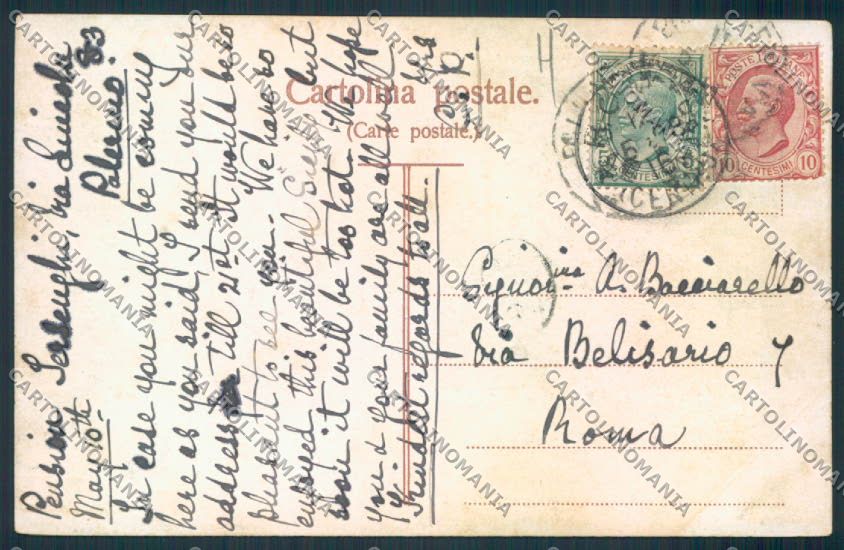 Pension Serseughi, Via Lincoln 83
May 10th Palermo.
In case you might be coming
here as you said, I send you our
address till 21st it would be so
pleasant to see you. We have so
enjoyed this beautiful Sicily but
soon it will be too hot. We hope
you & your family are all well
Kindest regards to all.
Cartolina postale.
(Carte postale.)
POSTE ITALIANE
CENTESIMI
10 CENTESIMI 10
(CENTRO)
Signorina A. Bacciarello
Via Belisario 7
Roma
CARTOLINOMANIA